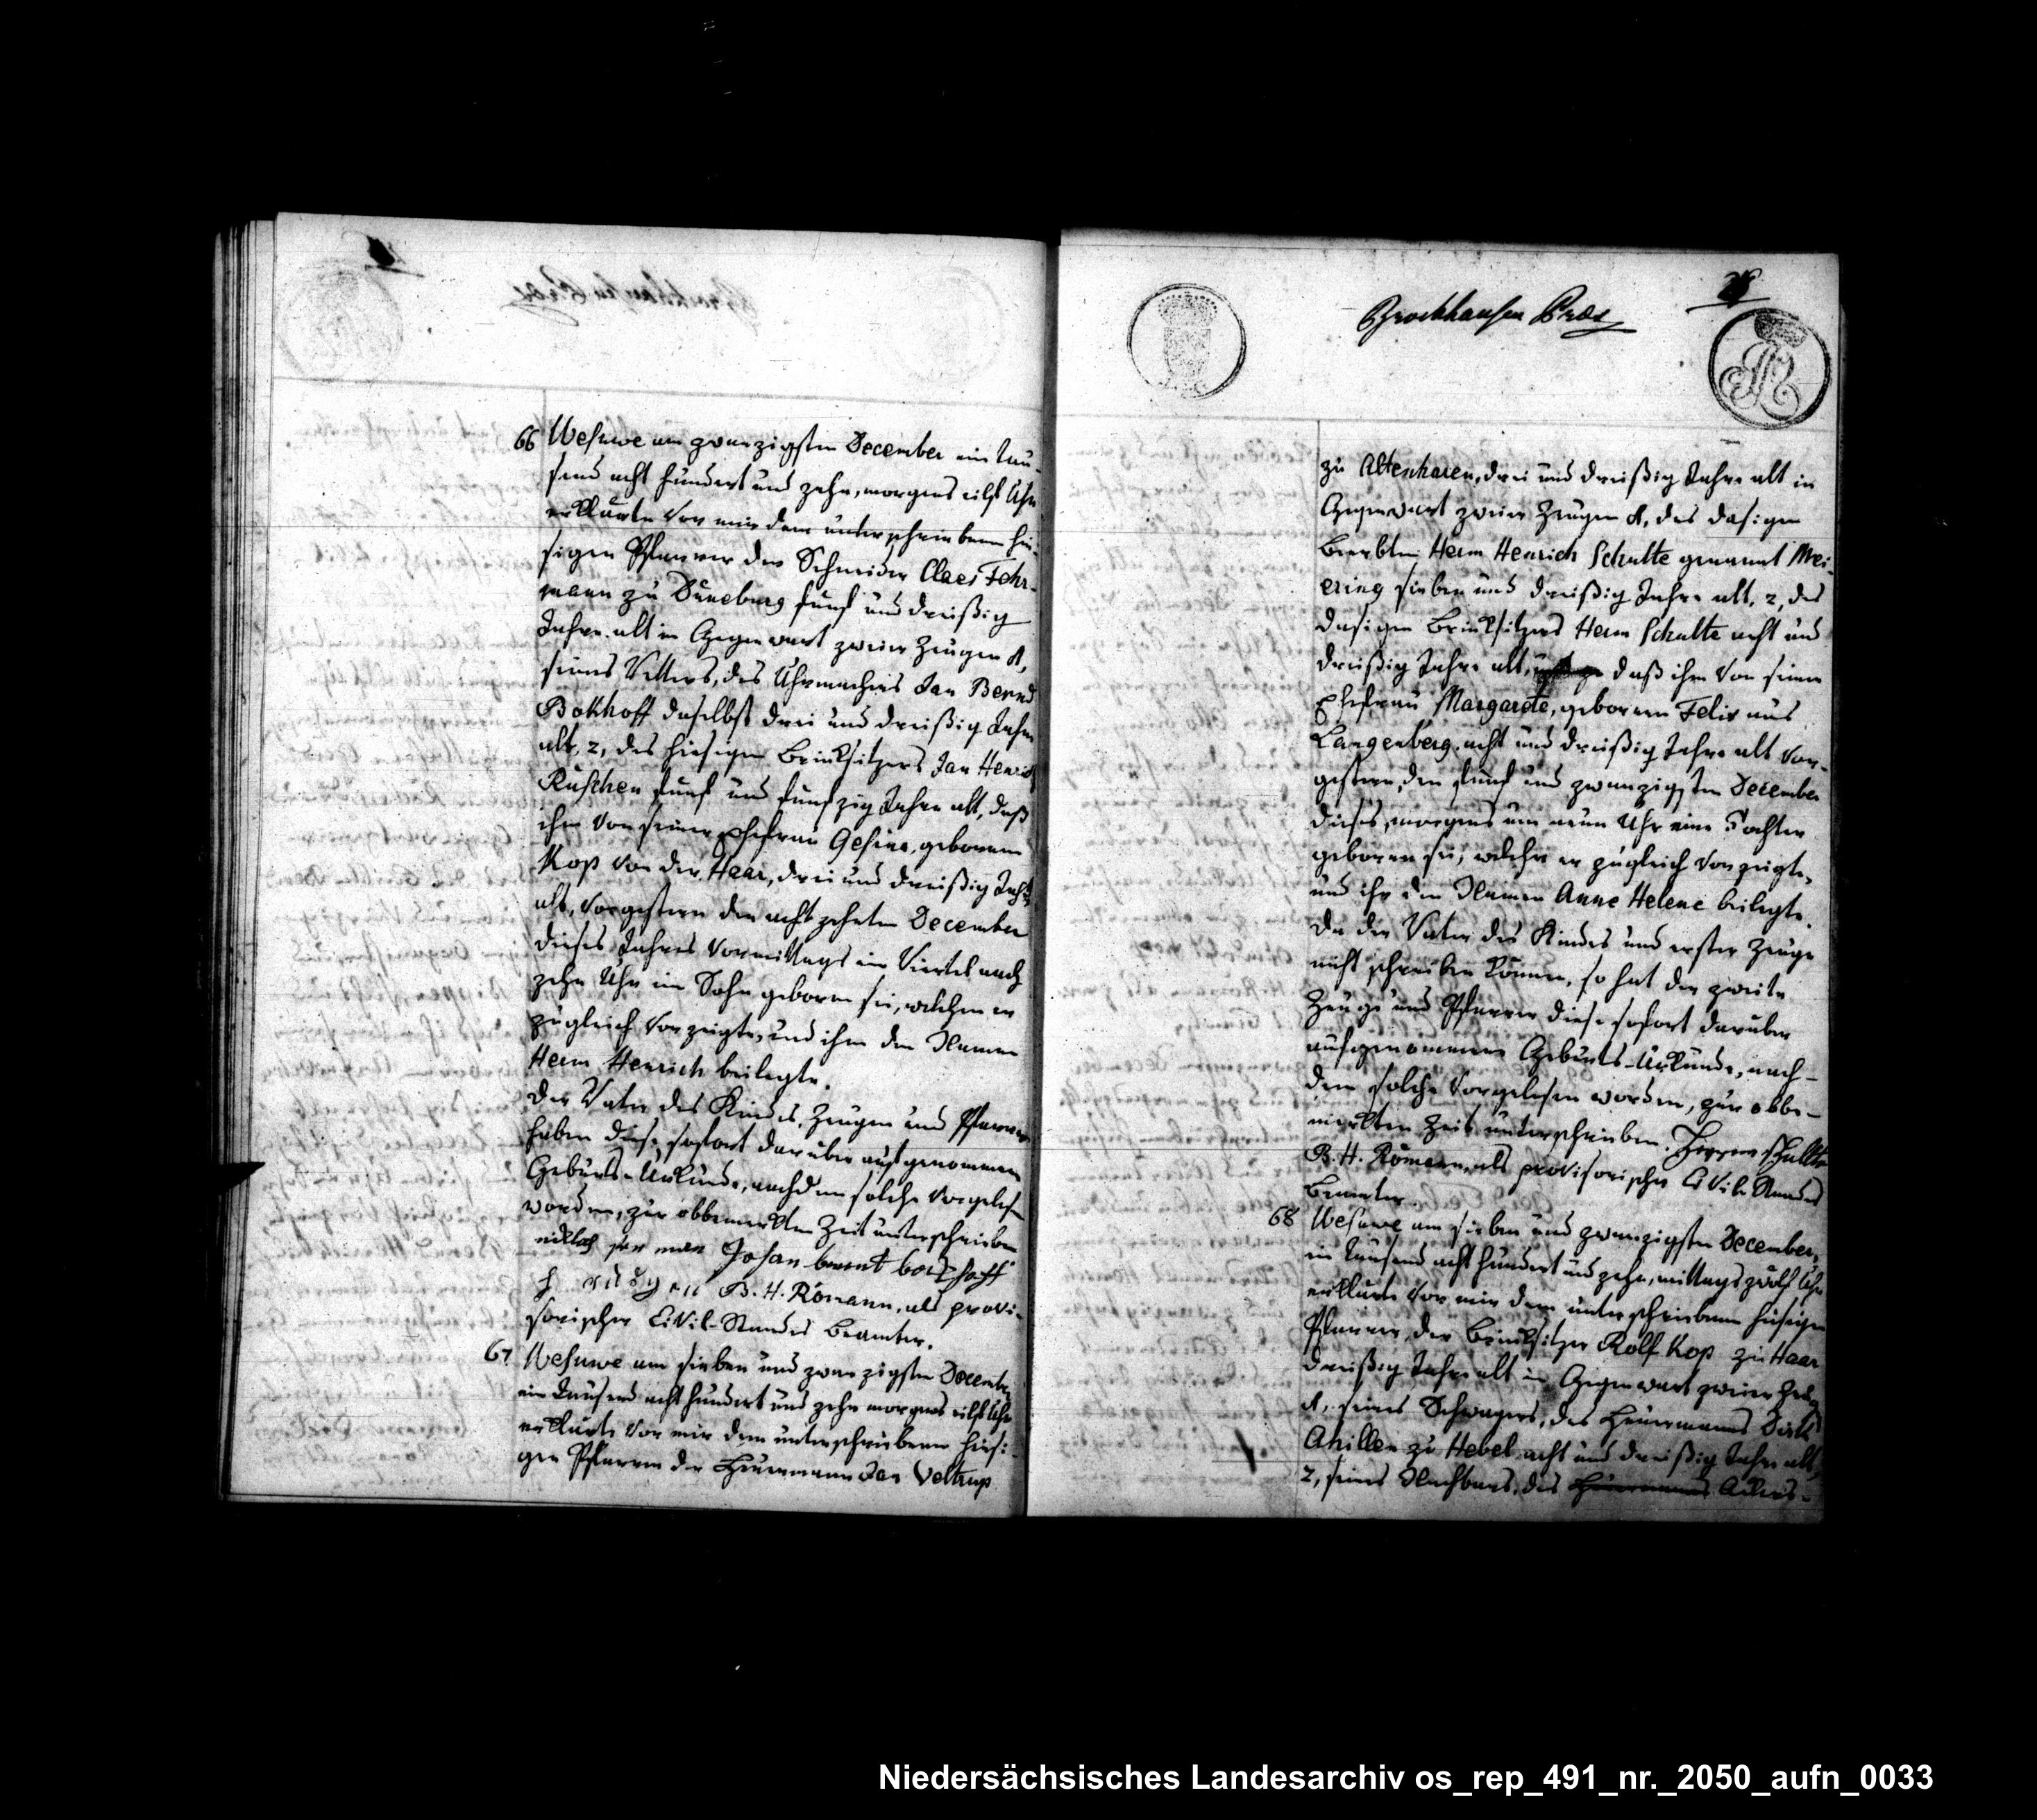 66 Wesuwe am zwanzigsten December ein tau-
send acht hundert und zehn, morgens eilf Uhr
erklärte vor mir dem unterschriebenen hie-
sigen Pfarrer der Schneider Claes Fehr-
mann zu Düneburg fünf und dreißig
Jahre alt in Gegenwart zweier Zeugen 1,
seines Vetters, des Uhrmachers Jan Bernd
Bokhoff daselbst drei und dreißig Jahre
alt, 2, des hiesigen Brinksitzers Jan Henrich
Ruschen fünf und fünfzig Jahre alt, daß
ihm von seiner Ehefrau Gesina, geborenen
Kop von der Haar, drei und dreißig Jahre
alt, vorgestern den acht zehnten December
dieses Jahres Vormittags ein Viertel nach
zehn Uhr ein Sohn geboren sei, welchen er
zugleich vorzeigte, und ihm den Namen
Herm Henrich beilegte.
Der Vater des Kindes, Zeugen und Pfarrer
haben diese sofort darüber aufgenommene
Geburts-Urkunde, nachdem solche vorgelesen
worden, zur obbemerkten Zeit unterschrieben
Johan bernt
B. H. Römann, als provi-
sorischer Civil-Standes Beamter.
67 Wesuwe am sieben und zwanzigsten December
ein tausend acht hundert und zehn morgens eilf Uhr
erklärte vor mir dem unterschriebenen hiesi-
gen Pfarrer der Heuermann Jan Veltrup
28
Brockhausen Präs
zu Altenharen, drei und dreißig Jahre alt in
Gegenwart zweier Zeugen 1, des dasigen
Beerbten Herm Henrich Schulte genannt Mei-
ering sieben und dreißig Jahre alt, 2, des
dasigen Brinksitzers Herm Schulte acht und
dreißig Jahre alt, daß ihm von seiner
Ehefrau Margarete, geborenen Felix aus
Langenberg, acht und dreißig Jahre alt vor-
gestern, den fünf und zwanzigsten December
dieses, morgens um neun Uhr eine Tochter
geboren sei, welche er zugleich vorzeigte,
und ihr den Namen Anne Helene beilegte.
Da der Vater des Kindes und erster Zeuge
nicht schreiben können, so hat der zweite
Zeuge und Pfarrer diese sofort darüber
aufgenommene Geburts-Urkunde, nach-
dem solche vorgelesen worden, zur obbe-
merkten Zeit unterschrieben. Herm Schulte
B. H. Römann, als provisorischer Civil-Standes
Beamter.
68 Wesuwe am sieben und zwanzigsten December,
ein tausend acht hundert und zehn, mittags zwölf Uhr
erklärte vor mir dem unterschriebenen hiesigen
Pfarrer, der Brinksitzer Rolf Kop zu Haar
dreißig Jahre alt in Gegenwart zweier Zeugen
1, seines Schwagers, des Heuermanns Dirk
Ahillen zu Hebel acht und dreißig Jahre alt,
2, seines Nachbars, des Heuermanns Ackers-
Niedersächsisches Landesarchiv os_rep_491_nr._2050_aufn_0033